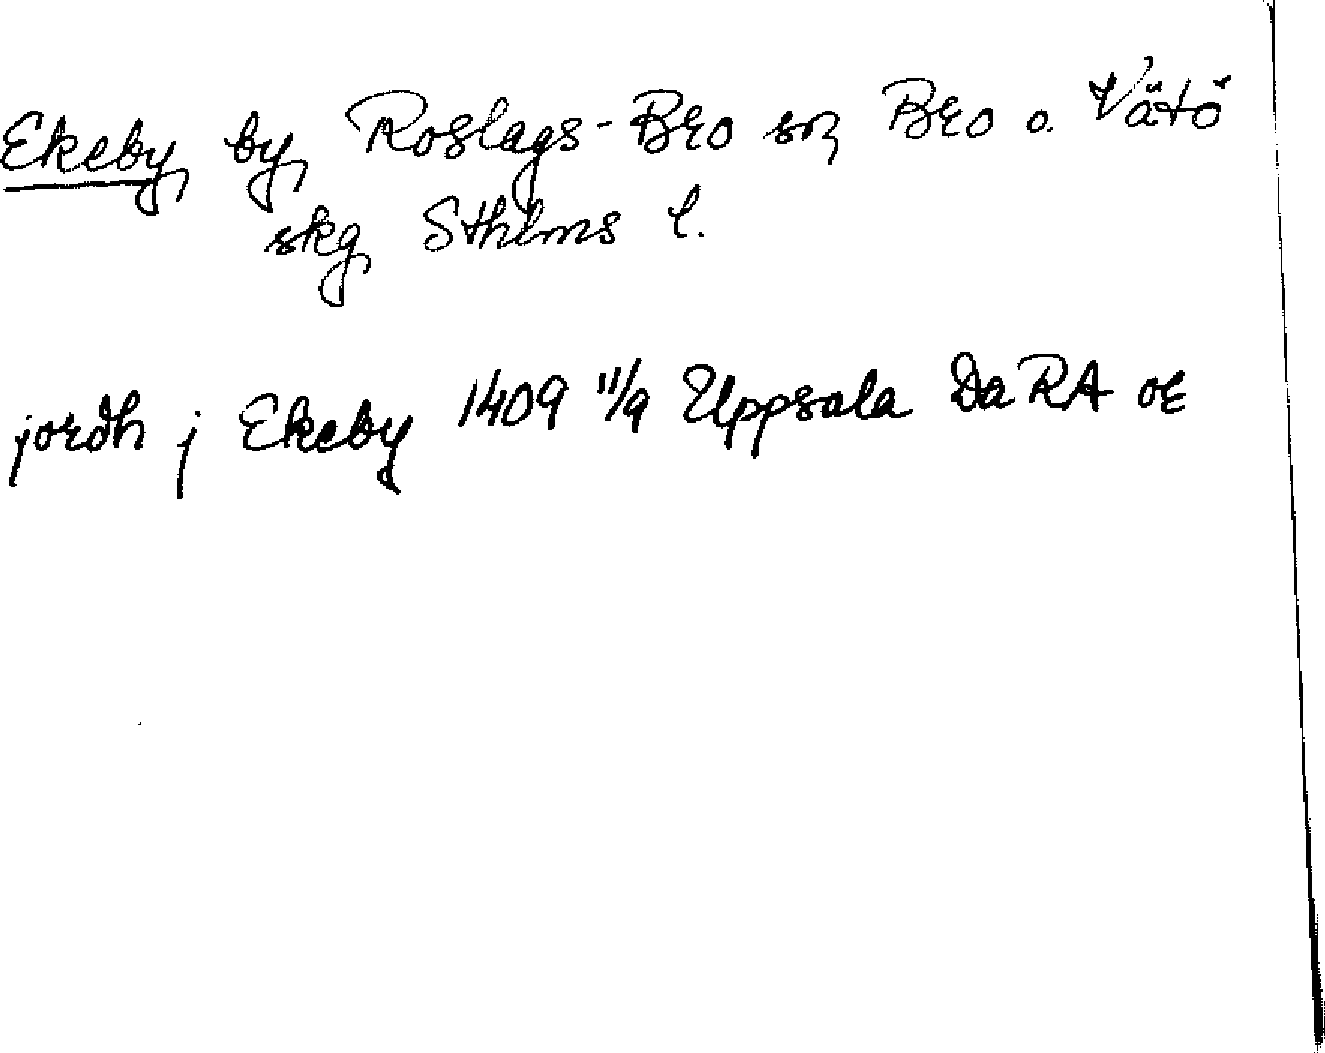 Ekeby by Roslags-Bro sn Bro o. Vätö
skg Sthlms l.
jordh j Ekeby 1409 11/9 Uppsala DaRA or